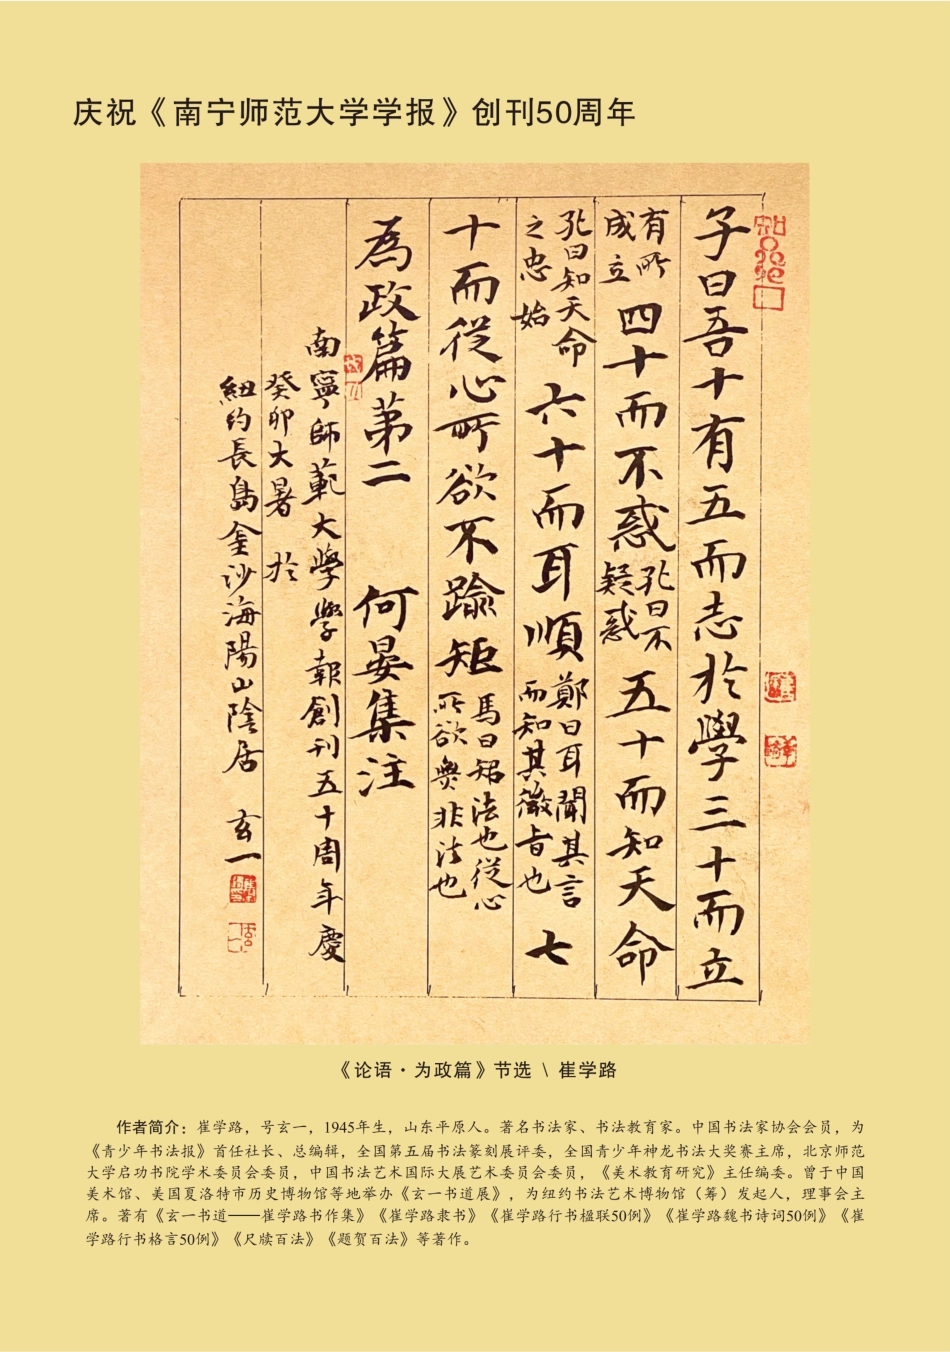 庆祝《南宁师范大学学报》创刊50周年
子曰吾十有五而志於學三十而立
有所成立四十而不惑孔曰不疑惑五十而知天命
孔曰知天命之忠始六十而耳順鄭曰耳聞其言而知其微旨也七
十而從心所欲不踰矩馬曰矩法也從心所欲無非法也
為政篇第二 何晏集注
南寧師範大學學報創刊五十周年慶
癸卯大暑 於
紐約長島金沙海陽山陰居 玄一
《论语·为政篇》节选 \ 崔学路
作者简介：崔学路，号玄一，1945年生，山东平原人。著名书法家、书法教育家。中国书法家协会会员，为
《青少年书法报》首任社长、总编辑，全国第五届书法篆刻展评委，全国青少年神龙书法大奖赛主席，北京师范
大学启功书院学术委员会委员，中国书法艺术国际大展艺术委员会委员，《美术教育研究》主任编委。曾于中国
美术馆、美国夏洛特市历史博物馆等地举办《玄一书道展》，为纽约书法艺术博物馆（筹）发起人，理事会主
席。著有《玄一书道——崔学路书作集》《崔学路隶书》《崔学路行书楹联50例》《崔学路魏书诗词50例》《崔
学路行书格言50例》《尺牍百法》《题贺百法》等著作。